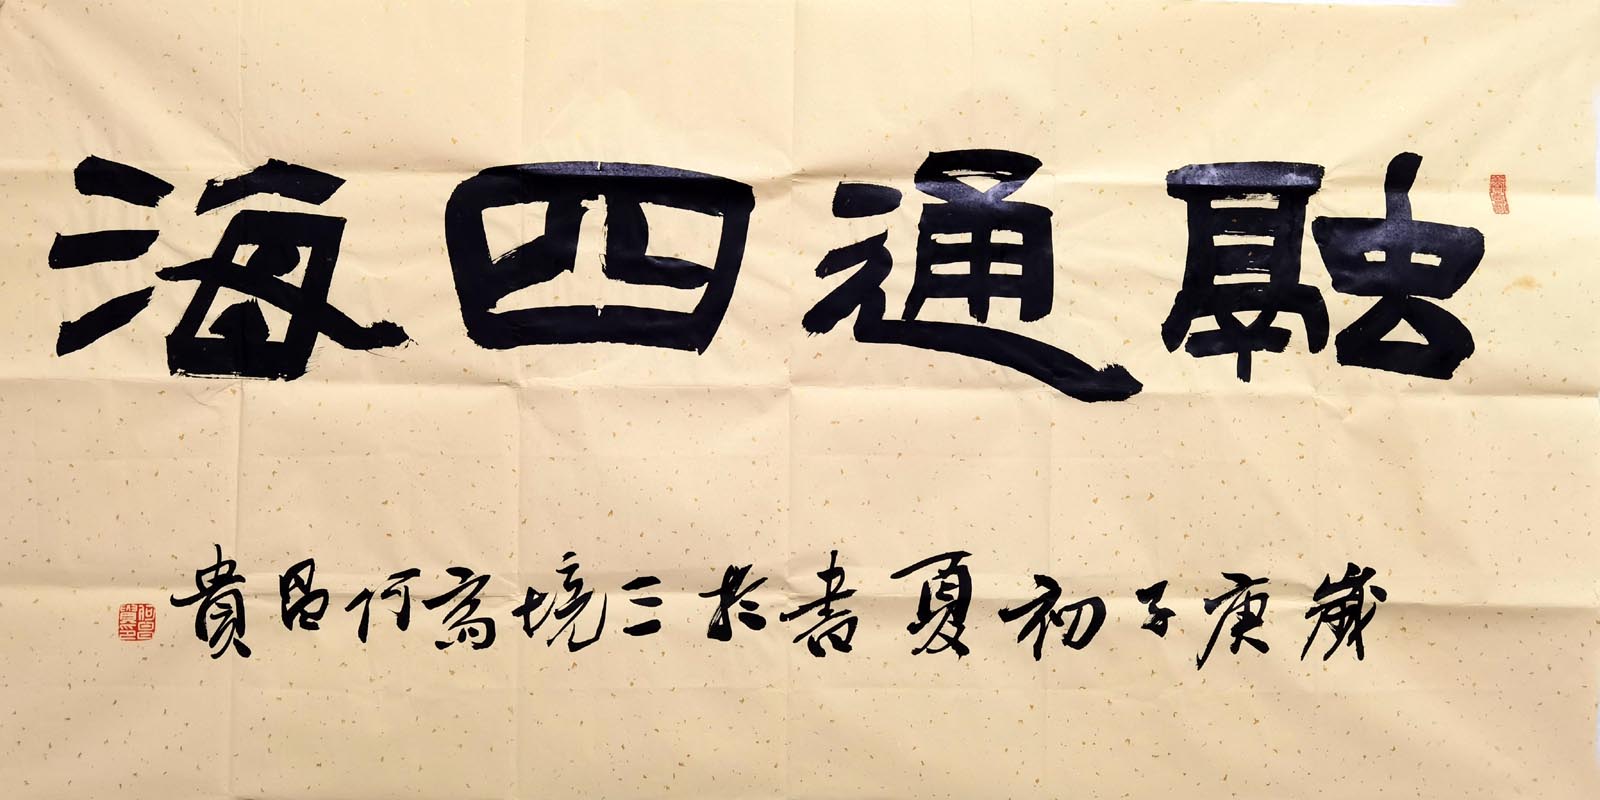 融通四海
歲庚子初夏書於三境高何昌貴